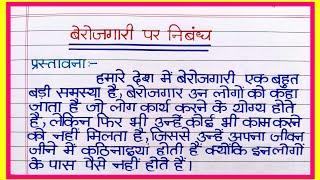 बेरोजगारी पर निबंध
प्रस्तावना:-
हमारे देश में बेरोजगारी एक बहुत
बड़ी समस्या है, बेरोजगार उन लोगों को कहा
जाता है जो लोग कार्य करने के योग्य होते
है, लेकिन फिर भी उन्हें कोई भी काम करने
को नहीं मिलता है, जिससे उन्हें अपना जीवन
जीने में कठिनाइयां होती हैं क्योंकि इन लोगों
के पास पैसे नहीं होते हैं।